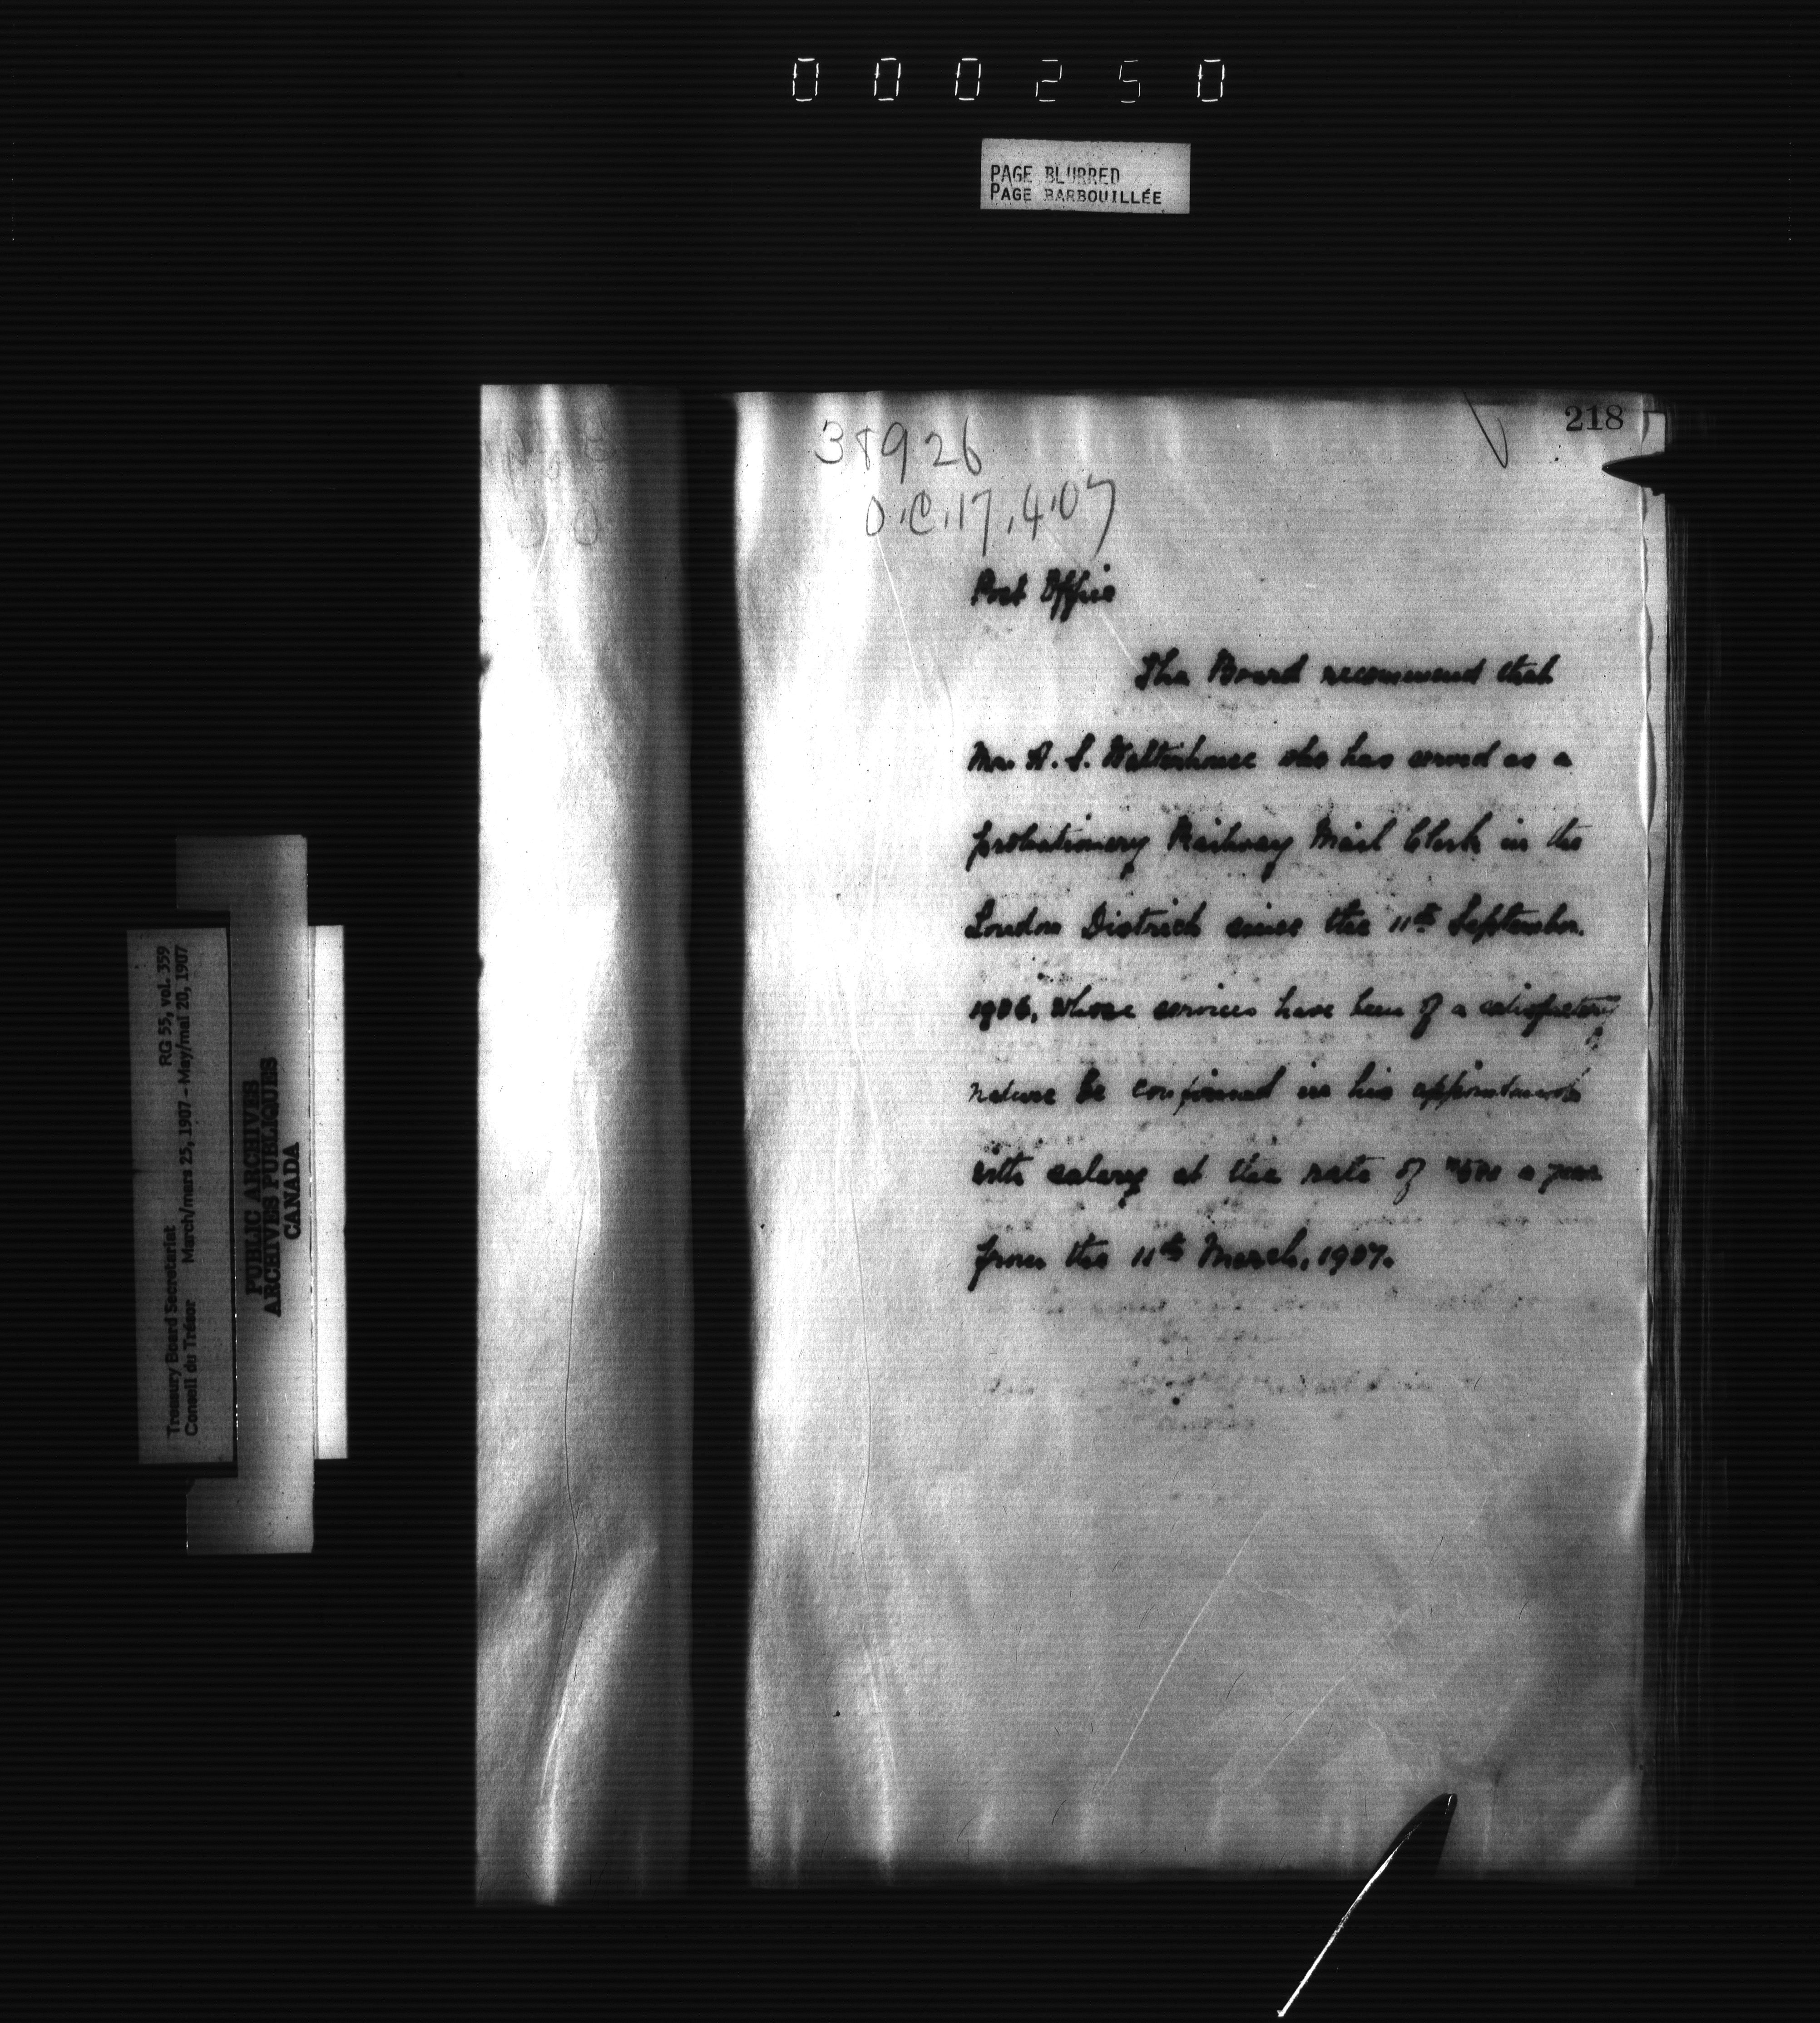 000250
PAGE BLURRED
PAGE BARBOUILLÉE
218
38926
O.C. 17.4.07
Post Office
The Board recommend that
Mr. A. S. Walterhouse who has served as a
probationary Railway Mail Clerk in the
London District since the 11th September,
1906, whose services have been of a satisfactory
nature be confirmed in his appointment
with salary at the rate of $500 a year
from the 11th March, 1907.
Treasury Board Secretariat RG 55, vol. 359
Conseil du Trésor March/mars 25, 1907 - May/mai 20, 1907
PUBLIC ARCHIVES
ARCHIVES PUBLIQUES
CANADA